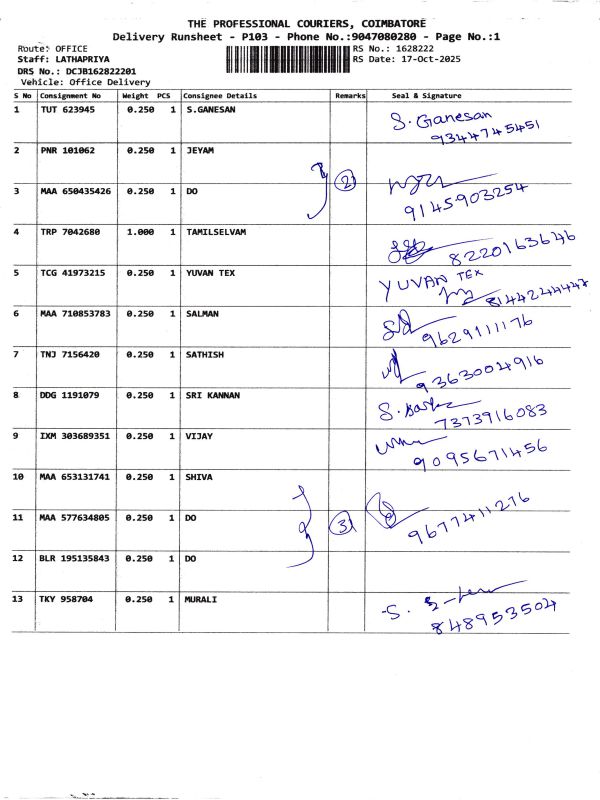 THE PROFESSIONAL COURIERS, COIMBATORE
Delivery Runsheet - P103 - Phone No.:9047080280 - Page No.:1
Route: OFFICE RS No.: 1628222
Staff: LATHAPRIYA RS Date: 17-Oct-2025
DRS No.: DCJB162822201
Vehicle: Office Delivery
S No Consignment No Weight PCS Consignee Details Remarks Seal & Signature
1 TUT 623945 0.250 1 S.GANESAN S. Ganesan
9344745451
2 PNR 101062 0.250 1 JEYAM
3 MAA 650435426 0.250 1 DO 2 9145903254
4 TRP 7042680 1.000 1 TAMILSELVAM 8220163646
5 TCG 41973215 0.250 1 YUVAN TEX YUVAN TEX
8144244447
6 MAA 710853783 0.250 1 SALMAN 9629111176
7 TNJ 7156420 0.250 1 SATHISH 9363004916
8 DDG 1191079 0.250 1 SRI KANNAN S.
7373916083
9 IXM 303689351 0.250 1 VIJAY 9095671456
10 MAA 653131741 0.250 1 SHIVA
11 MAA 577634805 0.250 1 DO 3 9677411276
12 BLR 195135843 0.250 1 DO
13 TKY 958704 0.250 1 MURALI S.
848953504